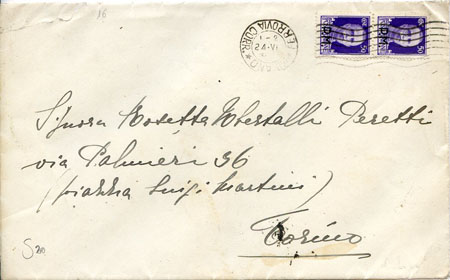 16
FERROVIA CORR.
50 50
Signora Rosetta Mestalli Peretti
via Palmieri 36
(piazza Luigi Martini)
Torino
S 20